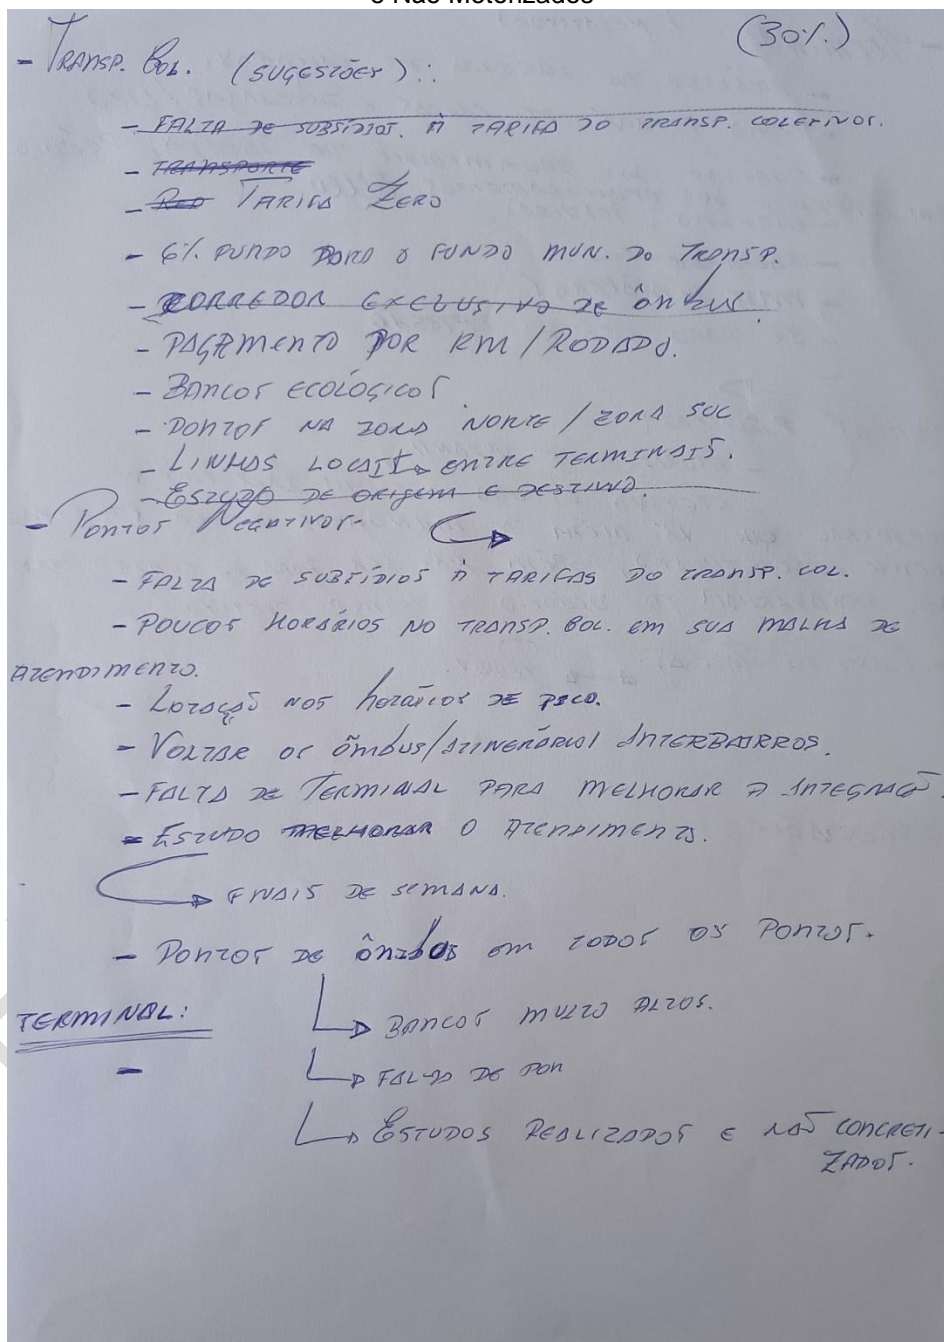 e Não Motorizados
(30%)
- TRANSP. COL. (SUGESTÕES):
- FALTA DE SUBSÍDIOS. À TARIFA DO TRANSP. COLETIVOS.
- TRANSPORTE
- TARIFA ZERO
- 6% FUNDO PARA O FUNDO MUN. DO TRANSP.
- CORREDOR EXCLUSIVO DE ÔNIBUS.
- PAGAMENTO POR KM/RODADO.
- BANCOS ECOLÓGICOS
- PONTOS NA ZONA NORTE / ZONA SUL
- LINHAS LOCAIS ENTRE TERMINAIS.
- ESTUDO DE ORIGEM E DESTINO.
- PONTOS NEGATIVOS-
- FALTA DE SUBSÍDIOS À TARIFAS DO TRANSP. COL.
- POUCOS HORÁRIOS NO TRANSP. COL. EM SUA MALHA DE
ATENDIMENTO.
- LOTAÇÃO NOS HORÁRIOS DE PICO.
- VOLTAR OS ÔNIBUS/ITINERÁRIOS INTERBAIRROS.
- FALTA DE TERMINAL PARA MELHORAR A INTEGRAÇÃO.
- ESTUDO MELHORAR O ATENDIMENTO.
FINAIS DE SEMANA.
- PONTOS DE ÔNIBUS EM TODOS OS PONTOS.
TERMINAL:
BANCOS MUITO ALTOS.
-
FALTA DE
ESTUDOS REALIZADOS E NÃO CONCRETI-
ZADOS.